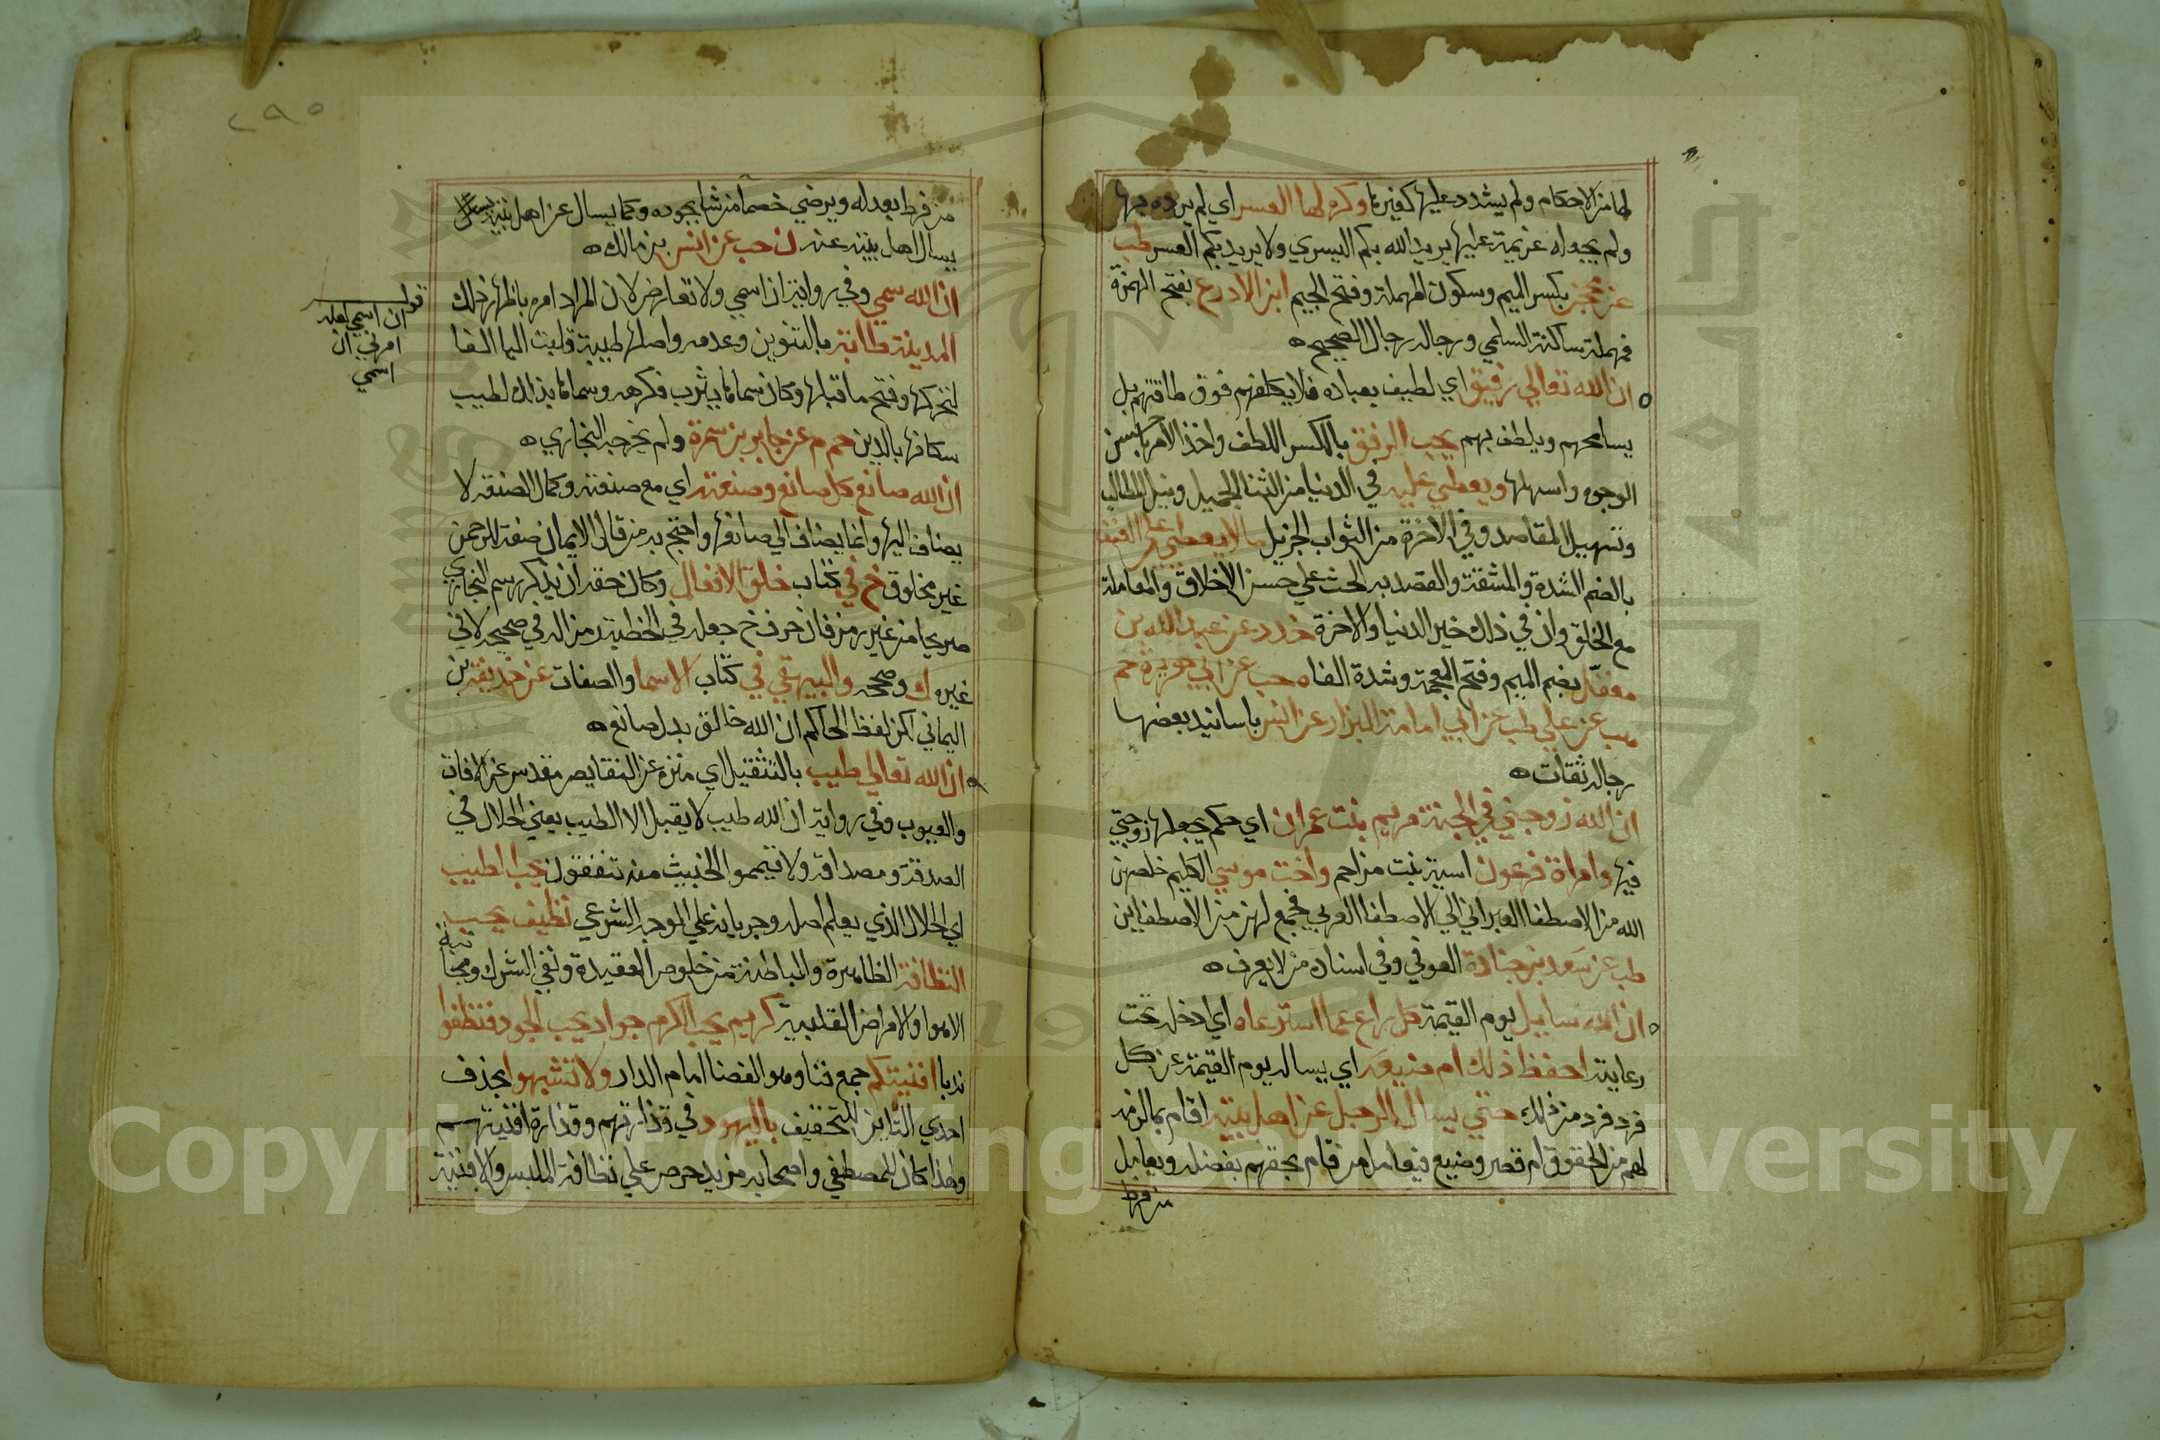 لها من الاحكام ولم يشدد عليها كغيرها وكره لها العسر اي لم يرده بها
ولم يجعله عزيمة عليها يريد الله بكم اليسري ولا يريد بكم العسر طب
عن محجن بكسر الميم وسكون المهملة وفتح الجيم ابن الادرع بفتح الهمزة
فمهملة ساكنة السلمي ورجاله رجال الصحيح ه
ان الله تعالي رفيق اي لطيف بعباده فلا يكلفهم فوق طاقتهم بل
يسامحهم ويلطف بهم يحب الرفق بالكسر اللطف واخذ الامر باحسن
الوجوه واسهلها ويعطي عليه في الدنيا من الثنا الجميل ونيل المطالب
وتسهيل المقاصد وفي الاخرة من الثواب الجزيل ما لا يعطي علي العنف
بالضم الشدة والمشقة والقصد به الحث علي حسن الاخلاق والمعاملة
مع الخلق وان في ذلك خير الدنيا والاخرة خد د عن عبد الله بن
مغفل بضم الميم وفتح المعجمة وشدة الفا ه حب عن ابي هريرة حم
هب عن علي طب عن ابي امامة البزار عن انس باسانيد بعضها
رجاله ثقات ه
ان الله زوجني في الجنة مريم بنت عمران اي حكم بجعلها زوجتي
فيها وامراة فرعون اسية بنت مزاحم واخت موسي الكليم خلصهن
الله من الاصطفا العبراني الي الاصطفا العربي فجمع لهن من الاصطفاين
طب عن سعد بن جنادة العوفي وفي اسناده من لا يعرف ه
ان الله سايل يوم القيمة كل راع عما استرعاه اي دخل تحت
رعايته احفظ ذلك ام ضيعه اي يساله يوم القيمة عن كل
فرد فرد من ذلك حتي يسال الرجل عن اهل بيته اقام بما لزمه
لهم من الحقوق ام قصر وضيع فيعامل من قام بحقهم بفضله ويعامل
من فرط
٢٩٥
من فرط بعدله ويرضي خصما من شا بجوده وكما يسال عن اهل بيته
يسال اهل بيته عنه ن حب عن انس بن مالك ه
ان الله سمي وفي رواية ان اسمي ولا تعارض لان المراد امره باظهار ذلك
المدينة طابة بالتنوين وعدمه واصلها طيبة قلبت اليا الفا
لتحركها وفتح ما قبلها وكان سماها يثرب فكرهه وسماها بذلك لطيب
سكانها بالدين حم م عن جابر بن سمرة ولم يخرجه البخاري ه
ان الله صانع كل صانع وصنعته اي مع صنعته وكمال الصنعة لا
يضاف اليها وانما يضاف الي صانعها واحتج به من قال الايمان صفة للرحمن
غير مخلوق خ في كتاب خلق الافعال وكان حقه ان يذكره باسم البخاري
صريحا من غير رمز فان حرف خ جعله في الخطبة رمزا له في صحيحه لا في
غيره ك وصححه والبيهقي في كتاب الاسما والصفات عن حذيفة بن
اليماني لكن لفظ الحاكم ان الله خالق بدل صانع ه
ان الله تعالي طيب بالتثقيل اي منزه عن النقايص مقدس عن الافات
والعيوب وفي رواية ان الله طيب لا يقبل الا الطيب يعني الحلال في
الصدقة ومصداقه ولا تيمموا الخبيث منه تنفقون يحب الطيب
اي الحلال الذي يعلم اصله وجريانه علي الوجه الشرعي نظيف يحب
النظافة الظاهرة والباطنة من خلوص العقيدة ونفي الشرك ومجانبة
الاهوا والامراض القلبية كريم يحب الكرم جواد يحب الجود فنظفوا
ندبا افنيتكم جمع فنا وهو الفضا امام الدار ولا تشبهوا بحذف
احدي التاين للتخفيف باليهود في قذارتهم وقذارة افنيتهم
ولهذا كان للمصطفي واصحابه مزيد حرص علي نظافة الملبس والافنية
قوله
ان اسمي لعله
امرني ان
اسمي
Copyright © King Saud University